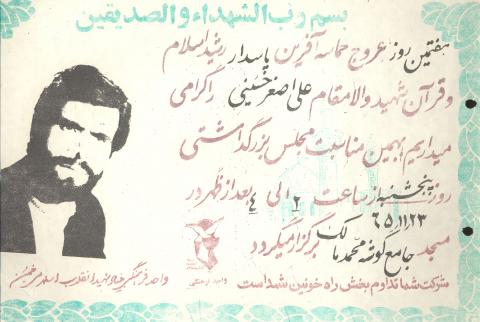 بسم رب الشهداء والصدیقین
هفتمین روز عروج حماسه آفرین پاسدار رشید اسلام
و قرآن شهید والامقام علی اصغر حسینی راگرامی
میداریم بهمین مناسبت مجلس بزرگداشتی
روز پنجشنبه از ساعت ۲ الی ٤ بعد از ظهر در
۶۵,۱۱,۲۳
مسجد جامع گوشه محمد مالک برگزار میگردد
شرکت شما تداوم بخش راه خونین شهداست
واحد فرهنگی بنیاد شهید انقلاب اسلامی خمین